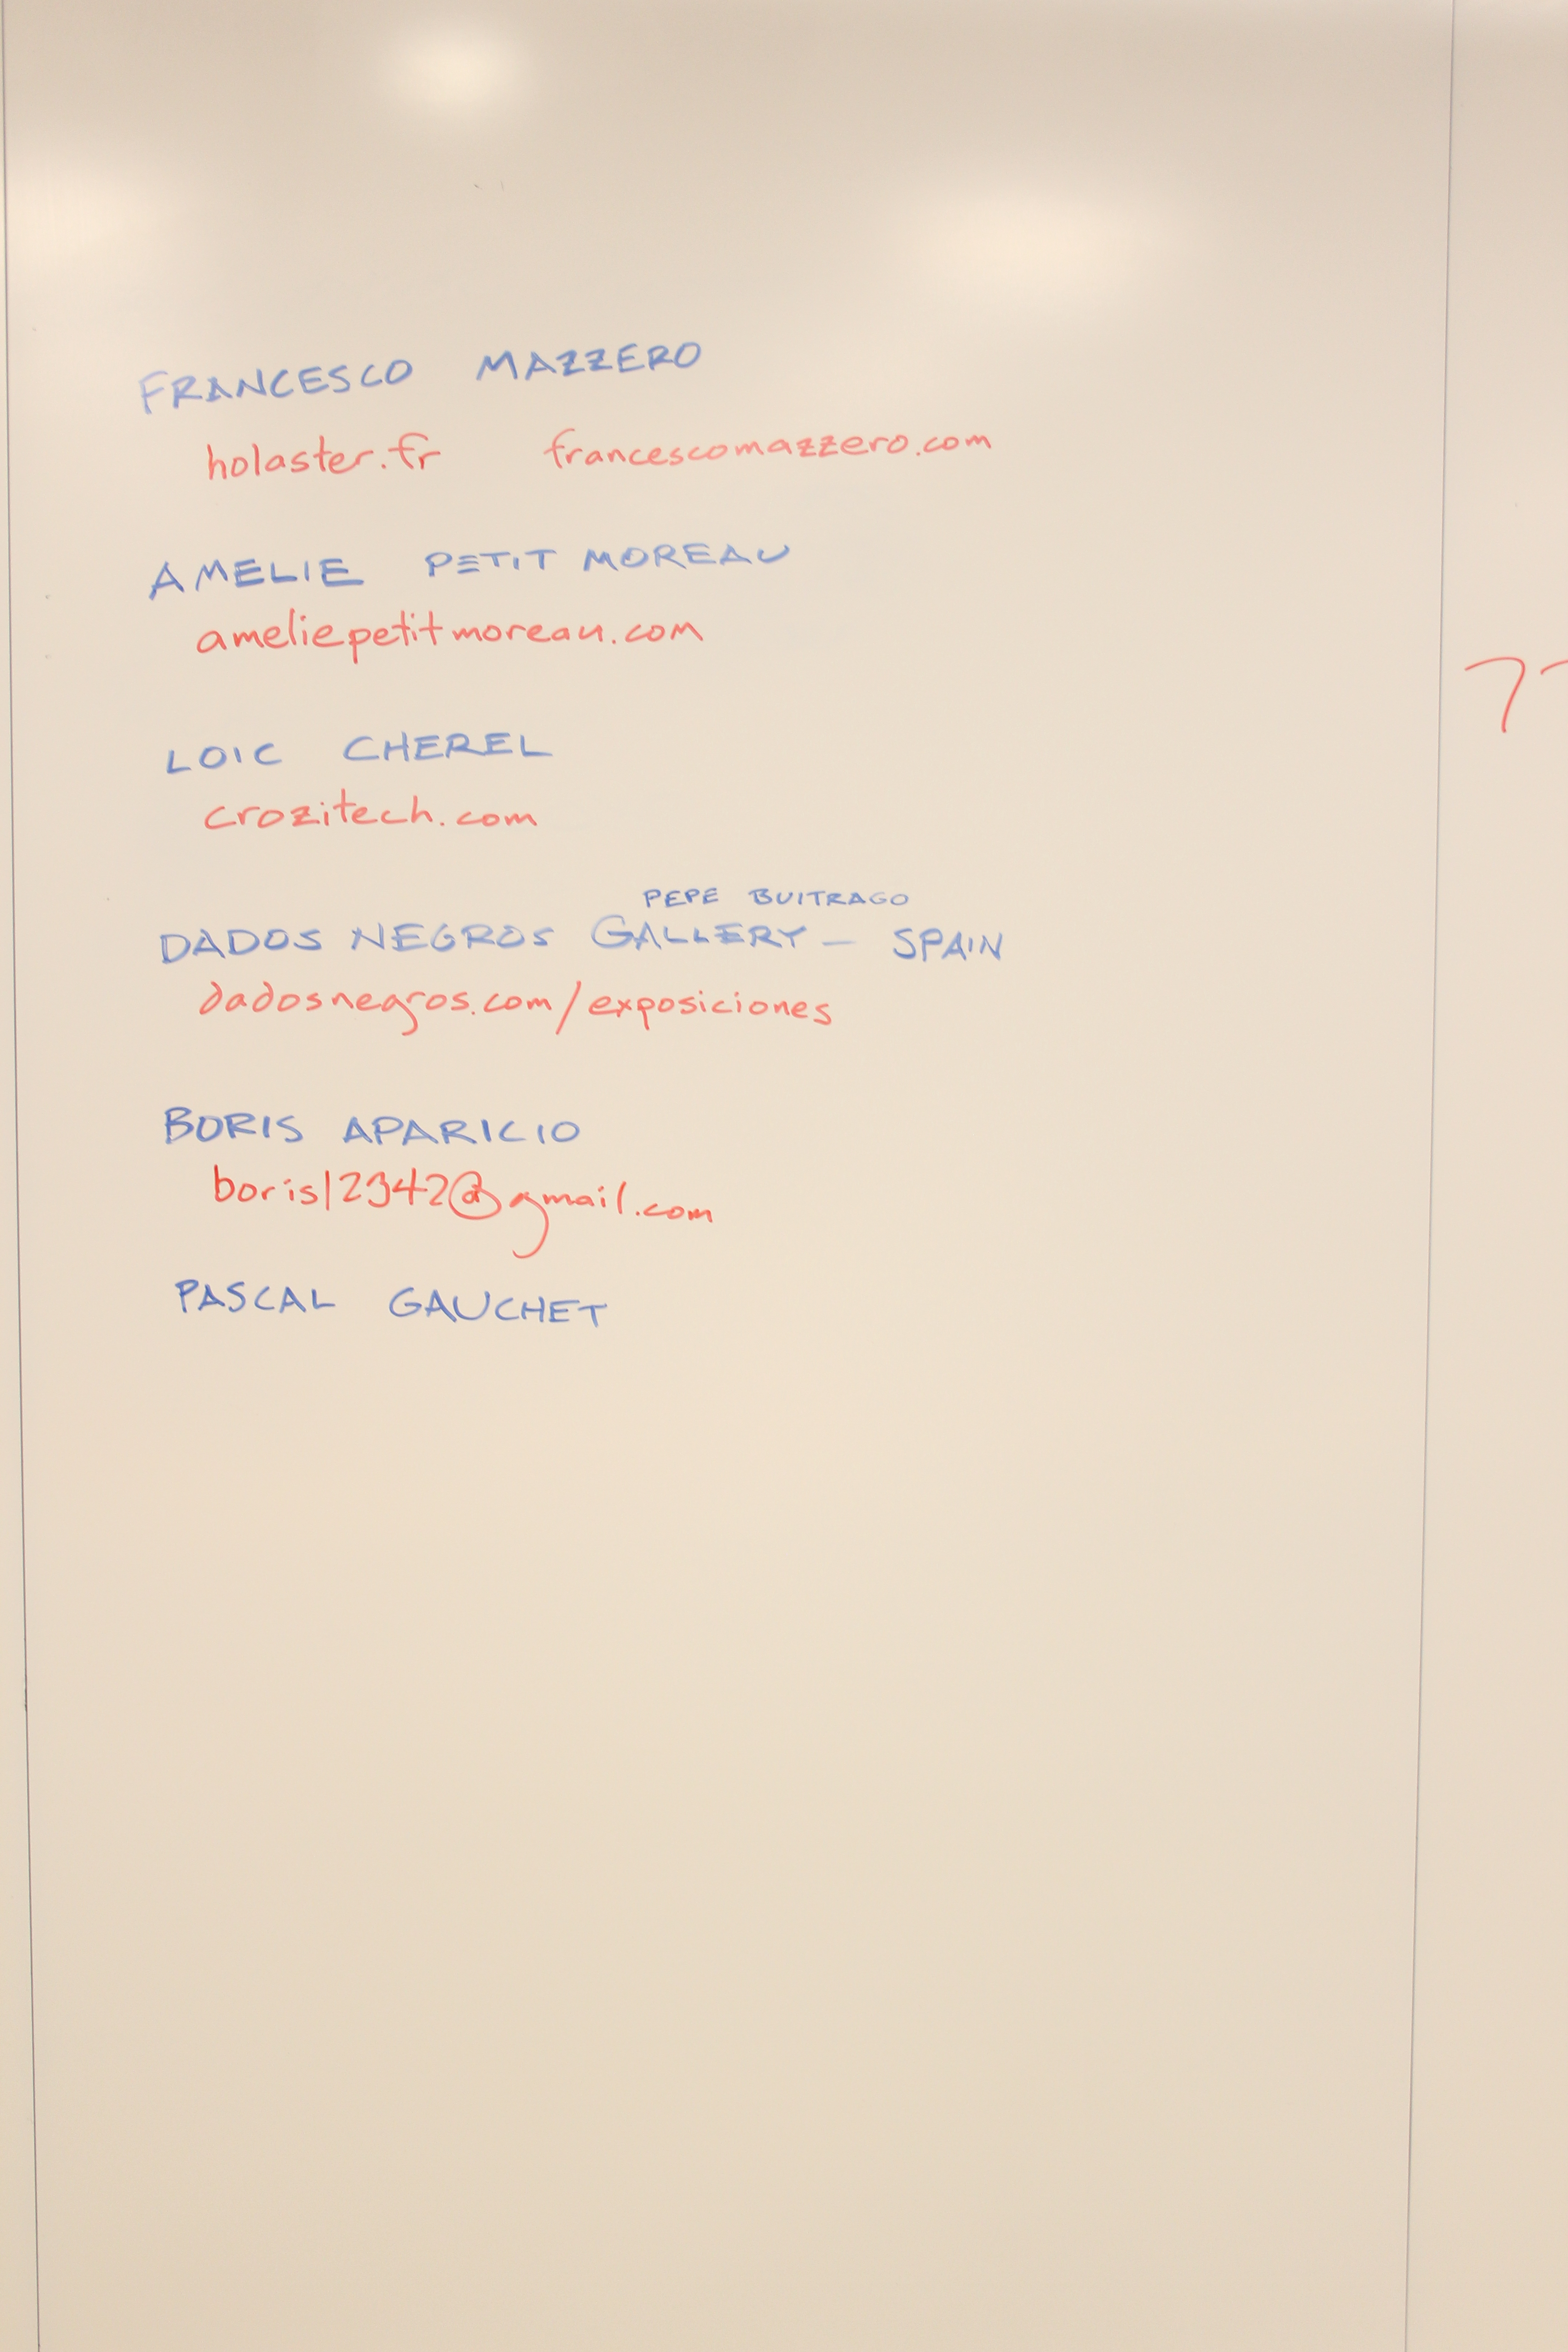 FRANCESCO MAZZERO
holaster.fr francescomazzero.com
AMELIE PETIT MOREAU
ameliepetitmoreau.com
LOIC CHEREL
crozitech.com
PEPE BUITRAGO
DADOS NEGROS GALLERY - SPAIN
dadosnegros.com/exposiciones
BORIS APARICIO
boris12342@gmail.com
PASCAL GAUCHET